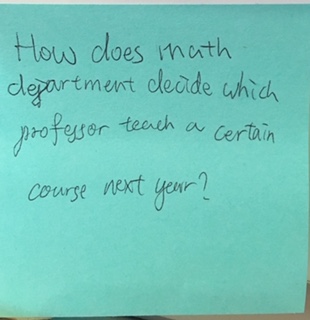 How does math
department decide which
professor teach a certain
course next year?